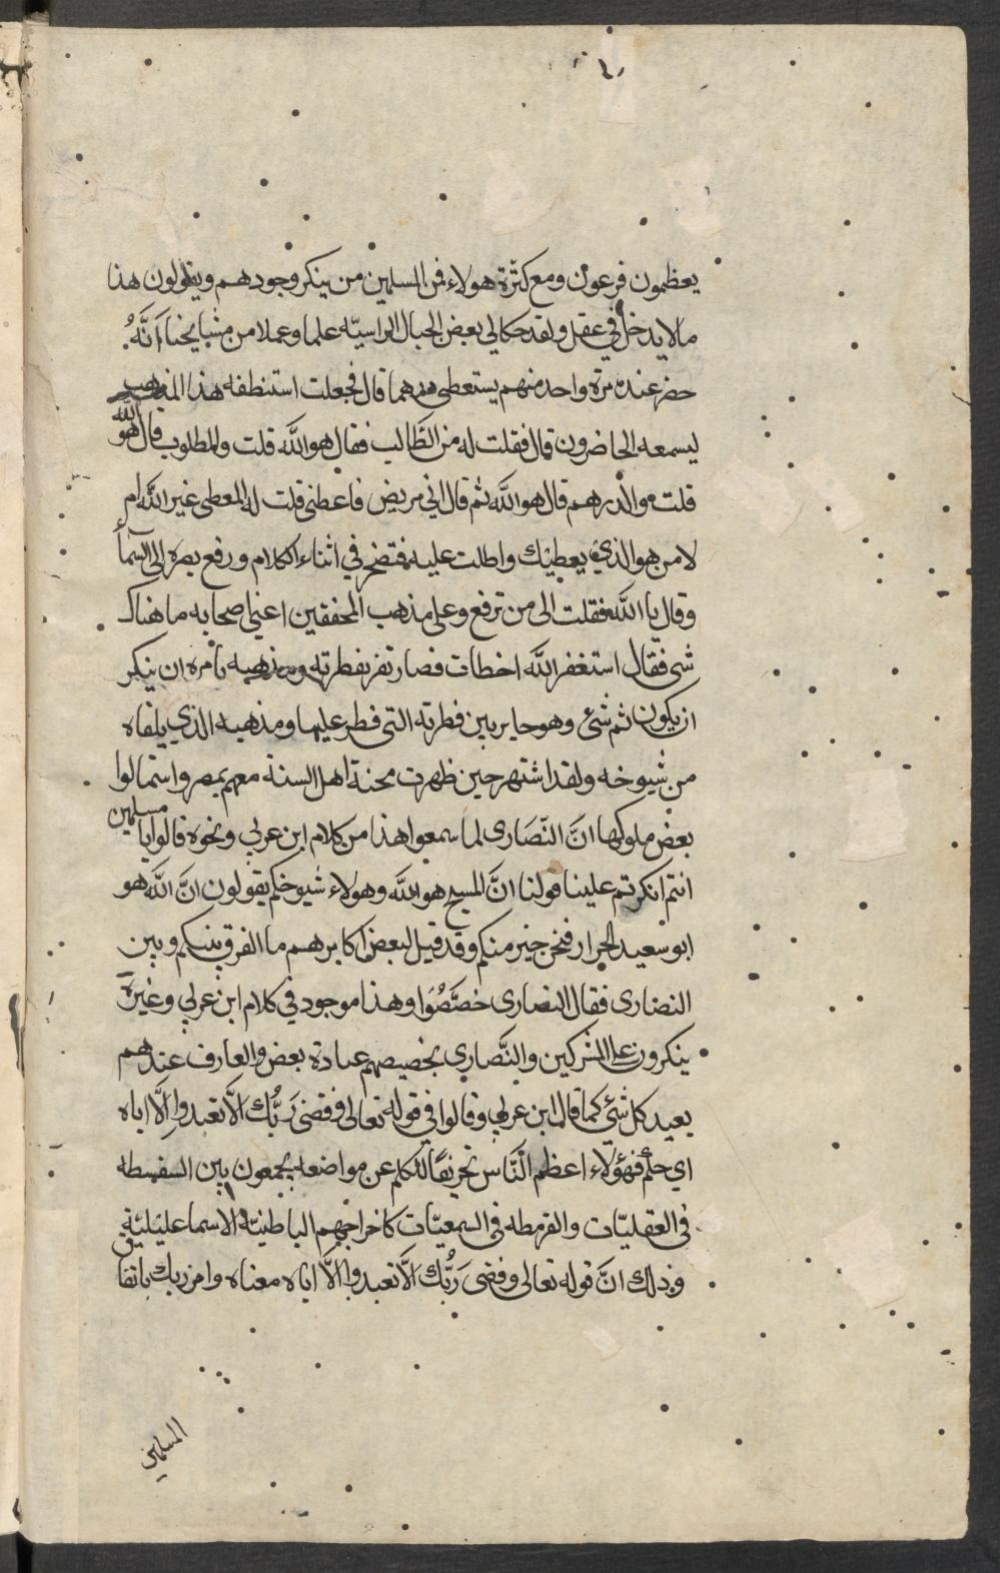 يعظمون فرعون ومع كثرة هولاء فى المسلمين من ينكر وجودهم ويقولون هذا
مالا يدخل في عقل ولقد حكا لي بعض الجبال الراسيّه علما وعملا من مشايخنا انَّهُ
حضر عنده مرة واحد منهم يستعطى درهما قال فجعلت استنطفه هذا المذهب
ليسمعه الحاضرون قال فقلت له من الطَّالب فقال هو اللَّه قلت والمطلوب قال هو الله
قلت والدرهم قال هو اللَّه ثم قال اني مريض فاعطني قلت له المعطي غير اللَّه ام
لا من هو الذي يعطيك واطلت عليه فتضجر في اثناء الكلام ورفع بصره الى السمأ
وقال يا اللَّه فقلت الى من ترفع وعلى مذهب المحققين اعني اصحابه ما هناك
شي فقال استغفر اللَّه اخطات فصار تقر بفطرته ومذهبه يأمره ان ينكر
ان يكون ثم شئ وهو حاير بين فطرته التى فطر عليها ومذهبه الذي يلقاه
من شيوخه ولقد اشتهر حين ظهرت محنة اهل السنة معهم بمصر واستمالوا
بعض ملوكها انَّ النَّصَارى لما سمعوا هذا من كلام ابن عربي ونحوه قالوا يا مسلمين
انتم انكرتم علينا قولنا انَّ المسيح هو اللَّه وهولاء شيوخكم يقولون انَّ اللَّه هو
ابو سعيد الخراز فنحن خير منكم وقد قيل لبعض اكابرهم ما الفرق بينكم وبين
النصارى فقال النصارى خصَّصُوا وهذا موجود في كلام ابن عربي وغيره
ينكرون على المشركين والنَّصارى تخصيصهم عبادة بعض والعارف عندهم
يعبد كل شئ كما قال ابن عربي وقالوا في قوله تعالى وقضى رَبُّك الَّا تعبدوا الَّا اياه
اي حكم فهؤلاء اعظم النَّاس تحريفًا للكلم عن مواضعه يجمعون بين السفسطه
فى العقليّات والقرمطه فى السمعيّات كاخراجهم الباطنيّة الاسماعيليّة
وذلك انَّ قوله تعالى وقضى رَبُّك الَّا تعبدوا الَّا اياه معناه وامر ربك باتفاق
المسلمين